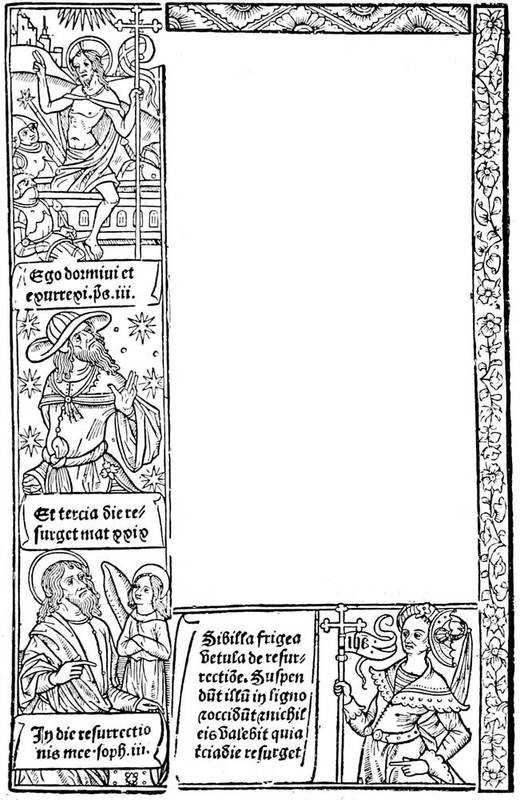 Ego dormiui et
exurrexi. p̄s. iii.
Et tercia die re⸗
surget mat xxix
In die resurrectio
nis mee · soph. iii.
Sibilla frigea
vetula de resur⸗
rectiōe. Suspen
dūt illū in ligno
⁊occidūt ⁊nichil
eis valebit quia
t̄ciadie resurget
ihc̄